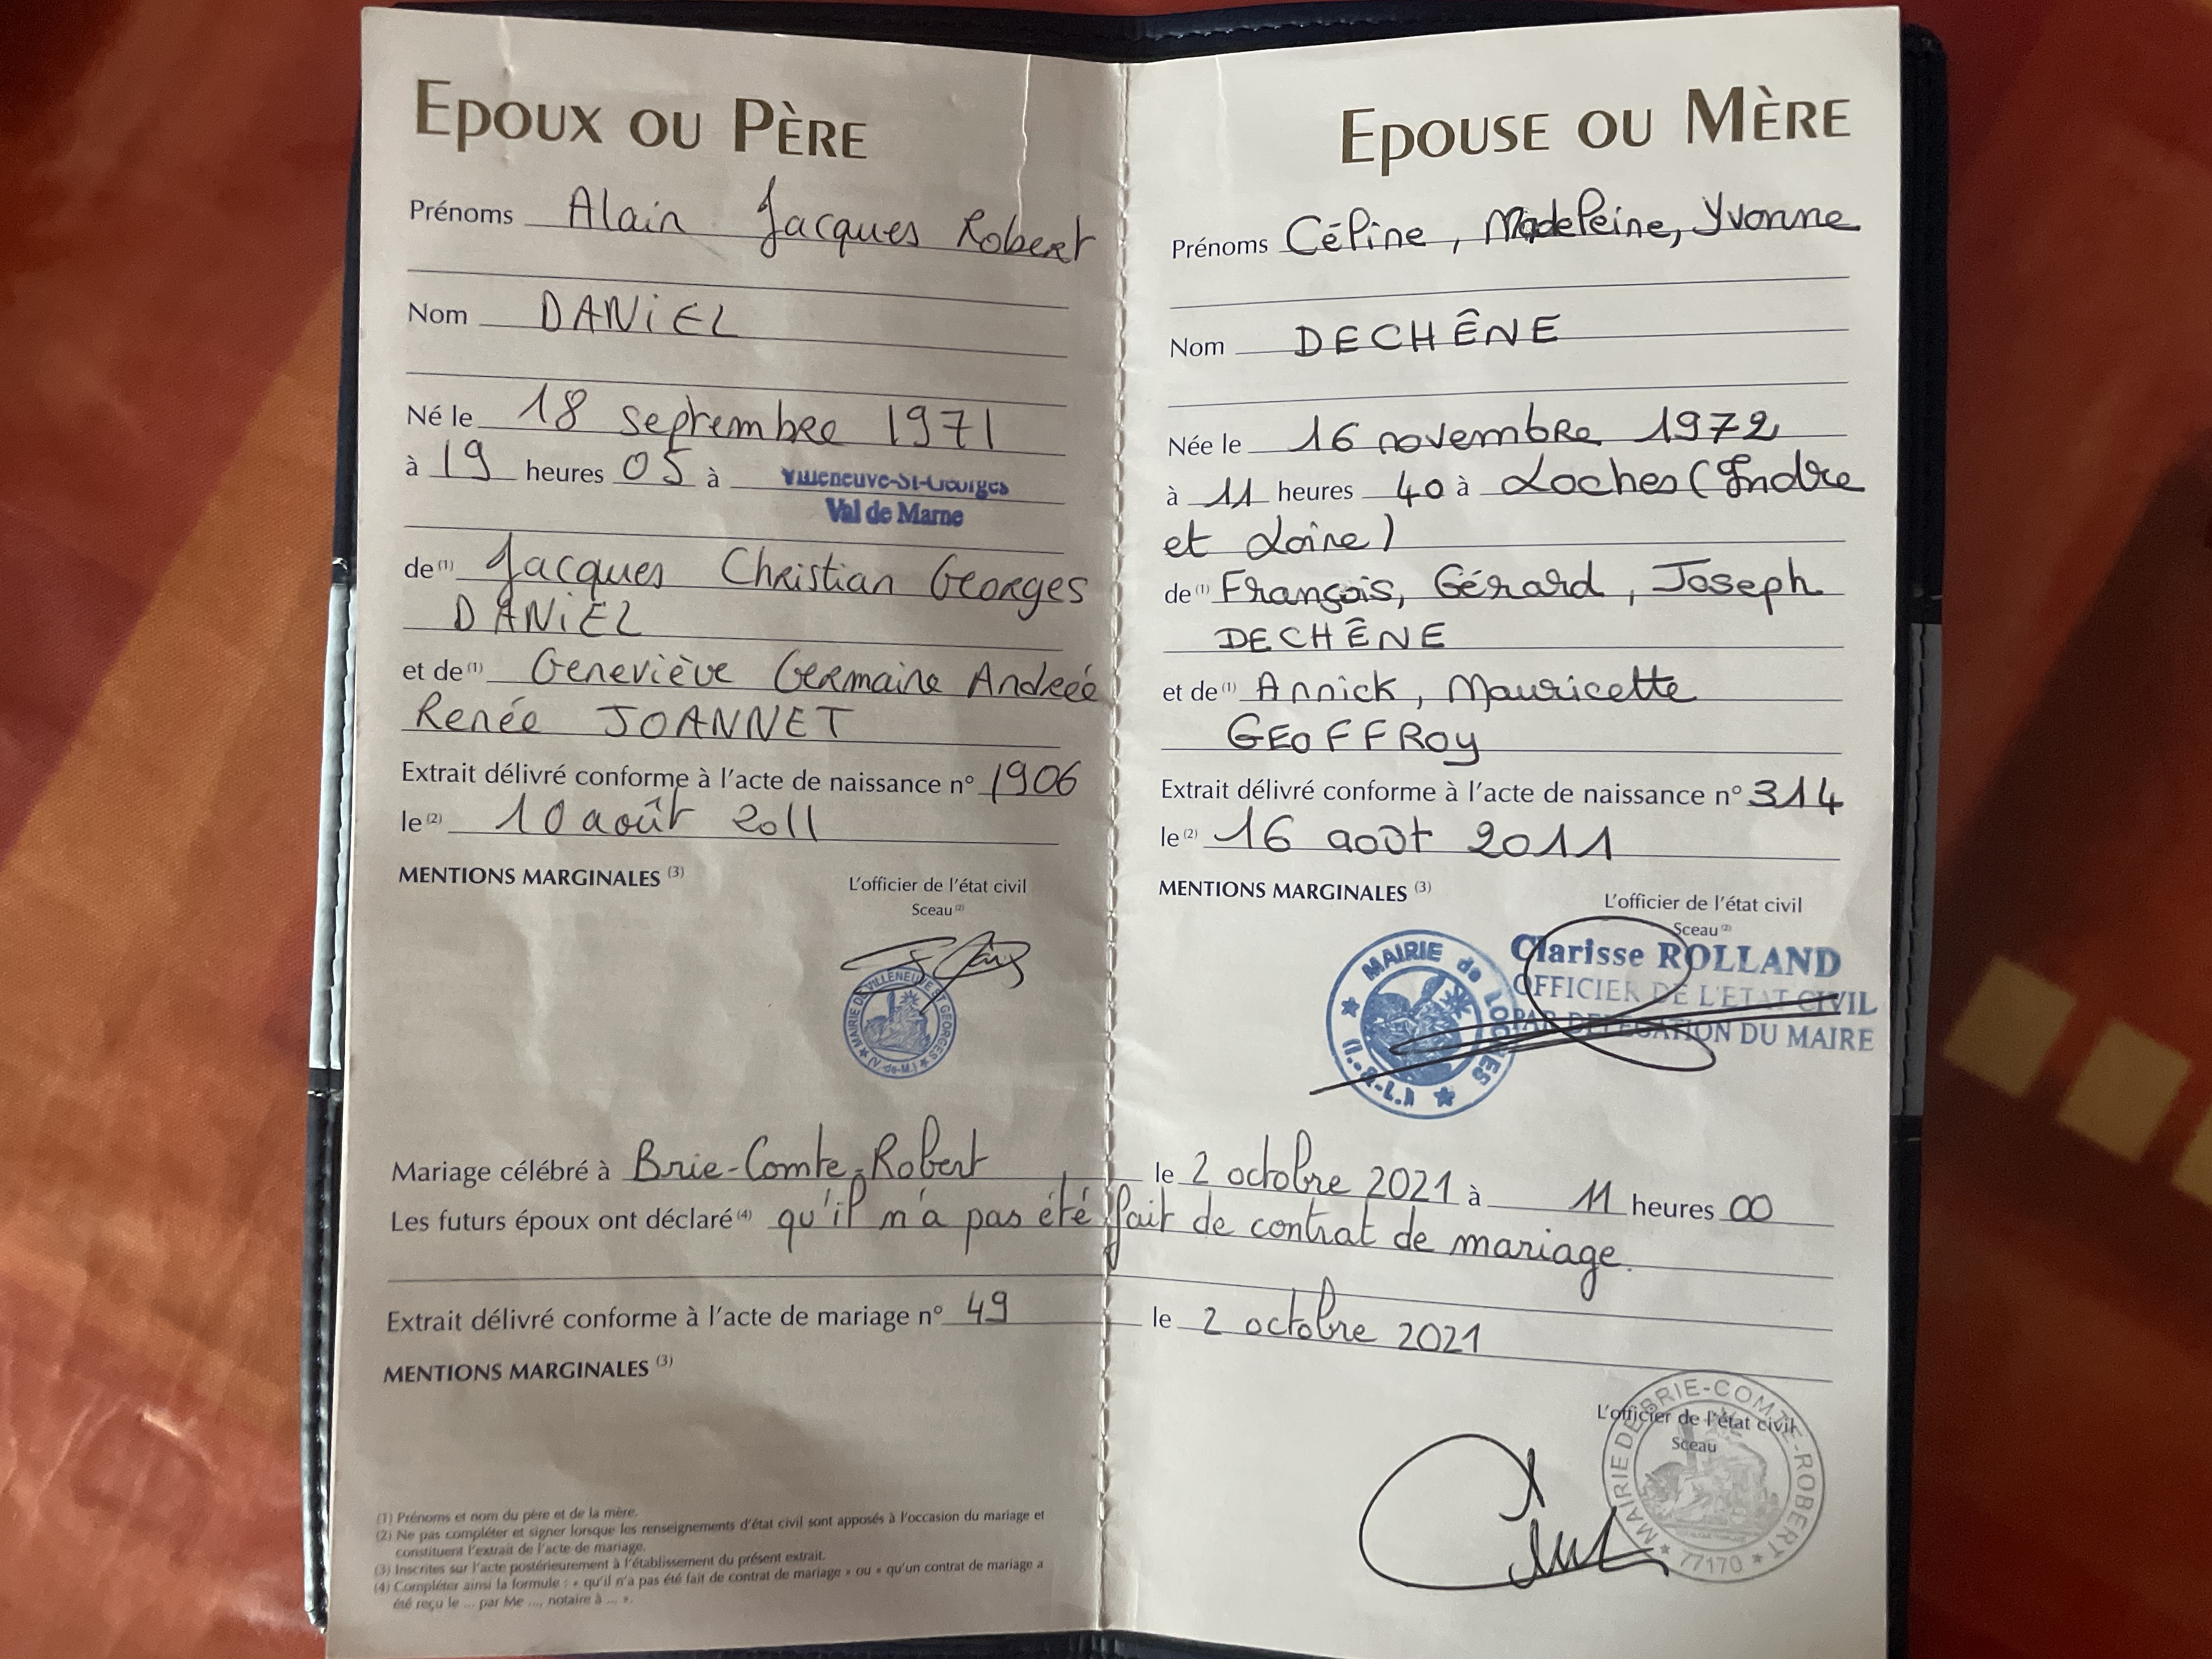 EPOUX OU PÈRE
Prénoms Alain Jacques Robert
Nom DANIEL
Né le 18 septembre 1971
à 19 heures 05 à Villeneuve-St-Georges
Val de Marne
de (1) Jacques Christian Georges
DANIEL
et de (1) Geneviève Germaine Andrée
Renée JOANNET
Extrait délivré conforme à l'acte de naissance n° 1906
le (2) 10 août 2011
MENTIONS MARGINALES (3)
L'officier de l'état civil
Sceau (2)
MAIRIE DE VILLENEUVE ST GEORGES
(V.-de-M.)
EPOUSE OU MÈRE
Prénoms Céline, Madeleine, Yvonne
Nom DECHÊNE
Née le 16 novembre 1972
à 11 heures 40 à Loches (Indre
et Loire)
de (1) François, Gérard, Joseph
DECHÊNE
et de (1) Annick, Mauricette
GEOFFROY
Extrait délivré conforme à l'acte de naissance n° 314
le (2) 16 août 2011
MENTIONS MARGINALES (3)
L'officier de l'état civil
Sceau (2)
Clarisse ROLLAND
OFFICIER DE L'ETAT CIVIL
PAR DELEGATION DU MAIRE
MAIRIE de LOCHES
(I.-&-L.)
Mariage célébré à Brie-Comte-Robert le 2 octobre 2021 à 11 heures 00
Les futurs époux ont déclaré (4) qu'il n'a pas été fait de contrat de mariage.
Extrait délivré conforme à l'acte de mariage n° 49 le 2 octobre 2021
MENTIONS MARGINALES (3)
L'officier de l'état civil
Sceau
MAIRIE DE BRIE-COMTE-ROBERT
77170
(1) Prénoms et nom du père et de la mère.
(2) Ne pas compléter et signer lorsque les renseignements d'état civil sont apposés à l'occasion du mariage et
constituent l'extrait de l'acte de mariage.
(3) Inscrites sur l'acte postérieurement à l'établissement du présent extrait.
(4) Compléter ainsi la formule : « qu'il n'a pas été fait de contrat de mariage » ou « qu'un contrat de mariage a
été reçu le ... par Me ..., notaire à ... ».